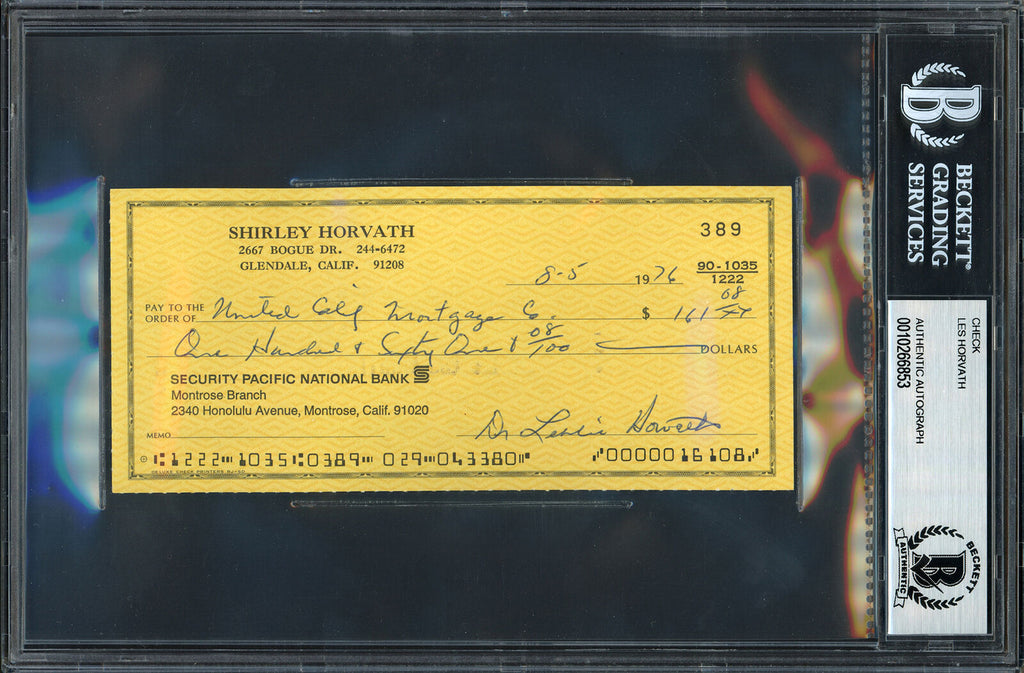 SHIRLEY HORVATH
2667 BOGUE DR. 244-6472
GLENDALE, CALIF. 91208
389
8-5 1976
90-1035
1222
PAY TO THE
ORDER OF United Calif Mortgage Co. $ 161 08/
One Hundred & Sixty One & 08/100 DOLLARS
SECURITY PACIFIC NATIONAL BANK
Montrose Branch
2340 Honolulu Avenue, Montrose, Calif. 91020
MEMO
Dr Leslie Horvath
⑆1222⑉1035⑆0389⑉ 029⑉043380⑈ ⑇0000016108⑇
DELUXE CHECK PRINTERS
B
BECKETT
GRADING
SERVICES
CHECK
LES HORVATH
AUTHENTIC AUTOGRAPH
0010266853
BECKETT
B
AUTHENTIC